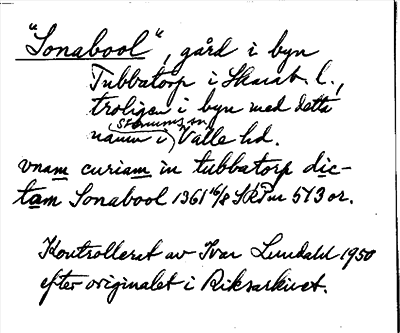 "Sonabool", gård i byn
Tubbatorp i Skarab. l.,
troligen i byn med detta
namn i Valle hd.
vnam curiam in tubbatorp dic-
tam Sonabool 1361 16/8 SRP nr 573 or.
Kontrollerat av Ivar Lundahl 1950
efter originalet i Riksarkivet.